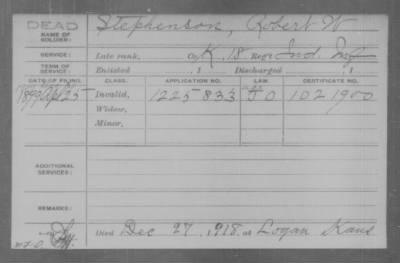 DEAD
NAME OF SOLDIER: Stephenson, Robert W
SERVICE: Late rank, Co. K, 18 Reg't Ind. Inf
TERM OF SERVICE: Enlisted , 1 Discharged , 1
DATE OF FILING. CLASS. APPLICATION NO. LAW. CERTIFICATE NO.
1899 Apr 25 Invalid, 1225833 J O 1021900
Widow,
Minor,
ADDITIONAL SERVICES:
REMARKS:
Died Dec 27, 1918, at Logan Kans